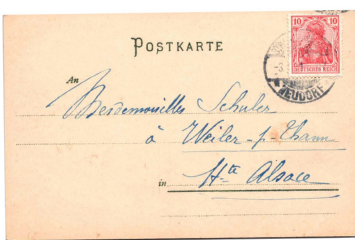 POSTKARTE
10 10
DEUTSCHES REICH
NEUDORF
An
Mesdemoiselles Schuler
à Weiler-p-Thann
in Hte Alsace